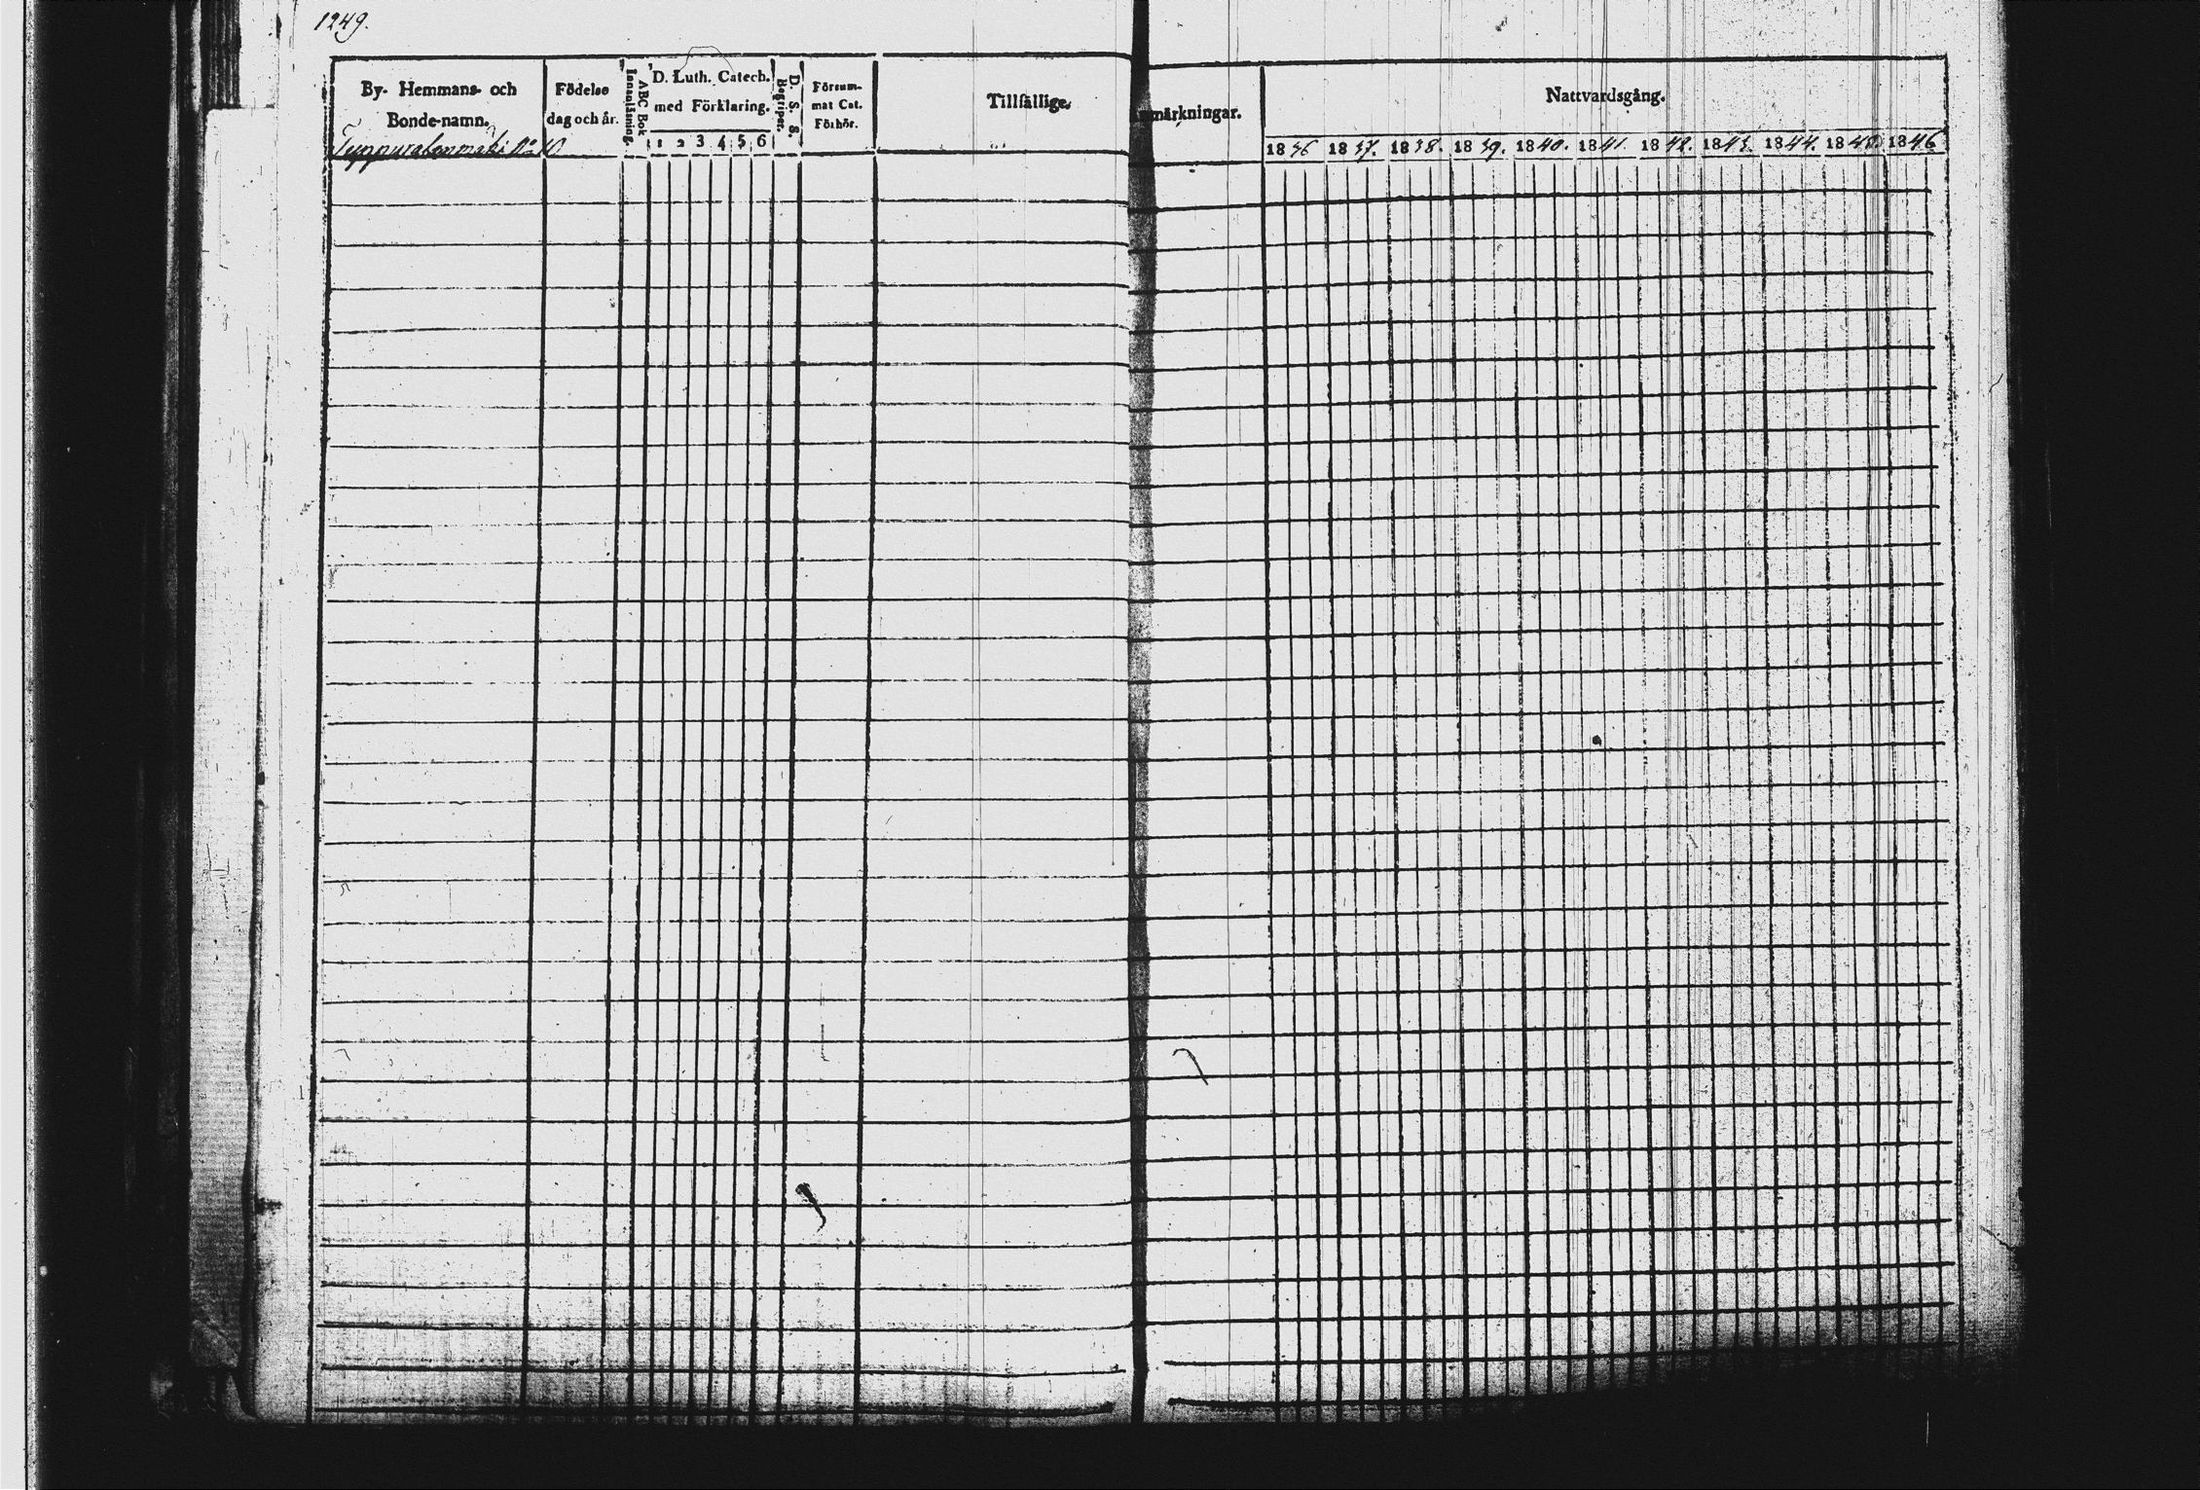 1249.
By- Hemmans- och
Bonde-namn.
Födelse
dag och år.
Innanläsning.
ABC Bok
D. Luth. Catech.
med Förklaring.
1 2 3 4 5 6
D. S. S.
Begriper.
Försum-
mat Cat.
Förhör.
Tillfällige
nmärkningar.
Nattvardsgång.
1836 1837. 1838. 1839. 1840. 1841. 1842. 1843. 1844. 1845. 1846
No 10